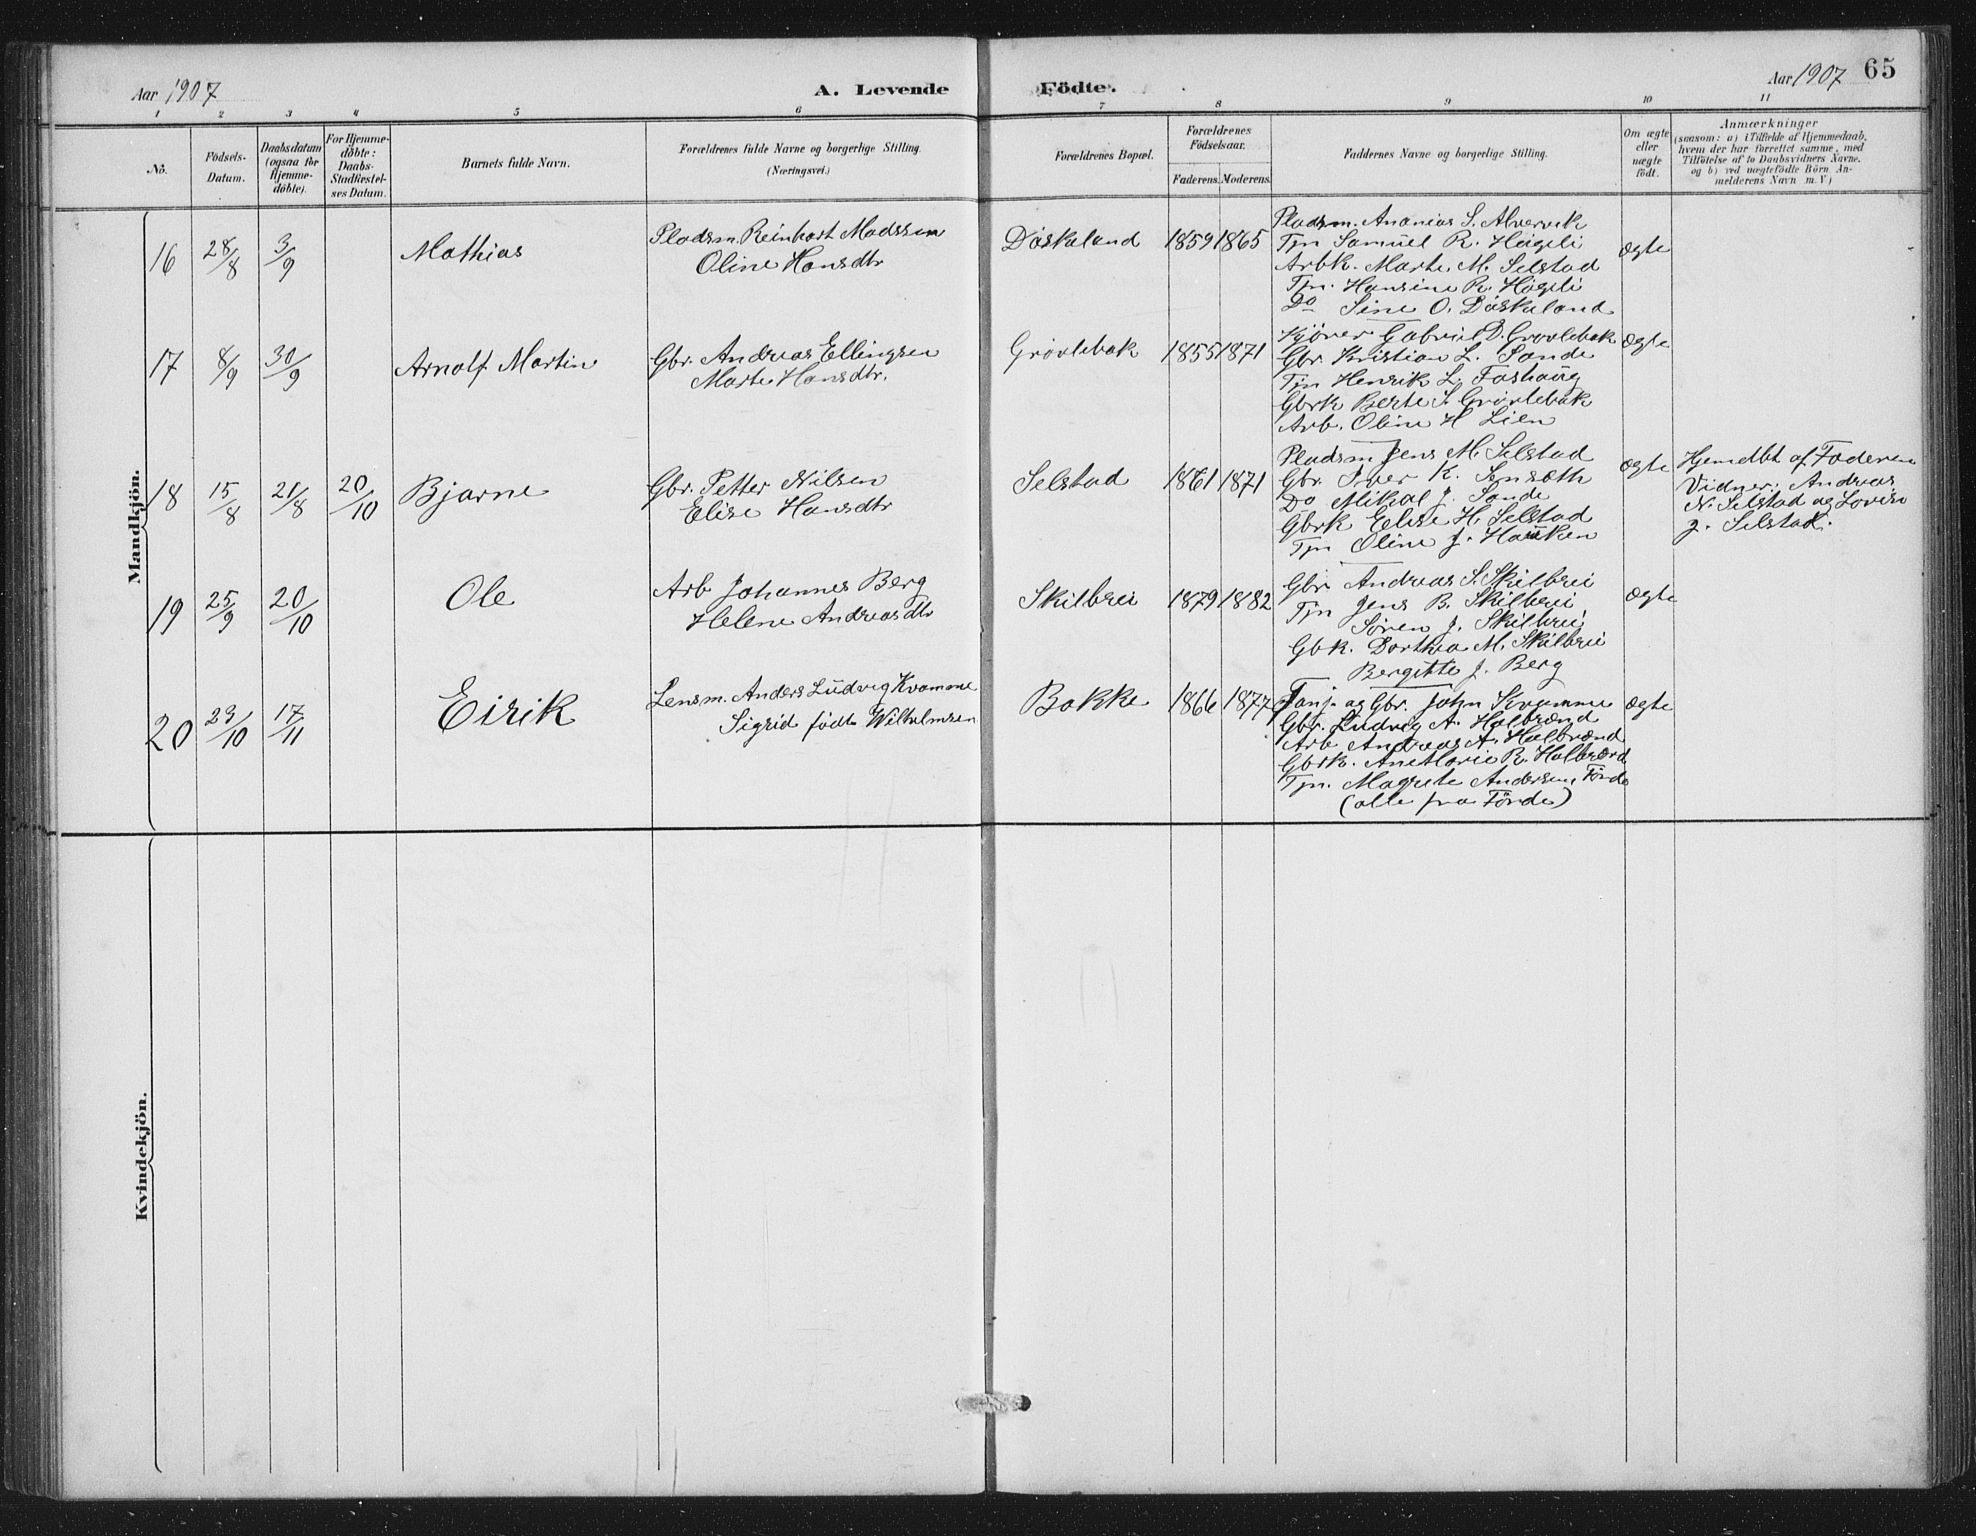 Aar 1907
A. Levende Födte.
Aar 1907 65
1 2 3 4 5 6 7 8 9 10 11
No.
Födsels-
Datum.
Daabsdatum
(ogsaa for
Hjemme-
döbte).
For Hjemme-
döbte:
Daabs-
Stadfæstel-
ses Datum.
Barnets fulde Navn.
Forældrenes fulde Navne og borgerlige Stilling.
(Næringsvei.)
Forældrenes Bopæl.
Forældrenes
Fødselsaar.
Faderens. Moderens.
Faddernes Navne og borgerlige Stilling.
Om ægte
eller
uægte
födt.
Anmærkninger
(saasom: a) i Tilfælde af Hjemmedaab,
hvem der har forrettet samme, med
Tilföielse af to Daabsvidners Navne.
og b) ved uægtefödte Börn An-
melderens Navn m. V.)
Mandkjön.
16 28/8 3/9 Mathias
Pladsm. Reinhart Madssen
Oline Hansdtr
Döskeland 1859 1865
Pladsm. Ananias S. Alvervik
Tjn Samuel R. Högeli
Arbk. Marte M. Selstad
Tjn. Hansine R. Högeli
Do Sine O. Döskeland
ægte
17 8/9 30/9 Arnolf Martin
Gbr. Andreas Ellingsen
Marte Hansdtr.
Grövlebak 1855 1871
Kjörer Gabriel D. Grovlebak
Gbr. Kristian L. Sande
Tjn Henrik L. Fashaug
Gbrk Berte S. Grövlebak
Arb. Oline H Lien
ægte
18 15/8 21/8 20/10 Bjarne
Gbr. Petter Nilsen
Elise Hansdtr
Selstad 1861 1871
Pladsm Jens M. Selstad
Gbr. Iver K.
Do Mikal J. Sande
Gbrk Elise H. Selstad
Tjn Oline J. Hauken
ægte
Hjemdbt af Faderen
Vidner: Andreas
N. Selstad og Lovise
J. Selstad.
19 25/9 20/10 Ole
Arb Johannes Berg
Helene Andreasdtr
Skilbrei 1879 1882
Gbr Andreas S. Skilbrei
Tjn Jens B. Skilbrei
Sören J. Skilbrei
Gbk. Dorthea M. Skilbrei
Bergitte J. Berg
ægte
20 29/10 17/11 Eirik
Lensm. Anders Ludvig Kvamme
Sigrid födt Wilhelmsen
Bakke 1866 1877
og Gbr. John Kvamme
Gbr. Ludvig A. Halbrænd
Arb Andreas A. Halbrænd
Gbrk. Ane Marie R. Halbrænd
Tjn. Magrete Andersen, Förde
(alle fra Förde)
ægte
Kvindekjön.